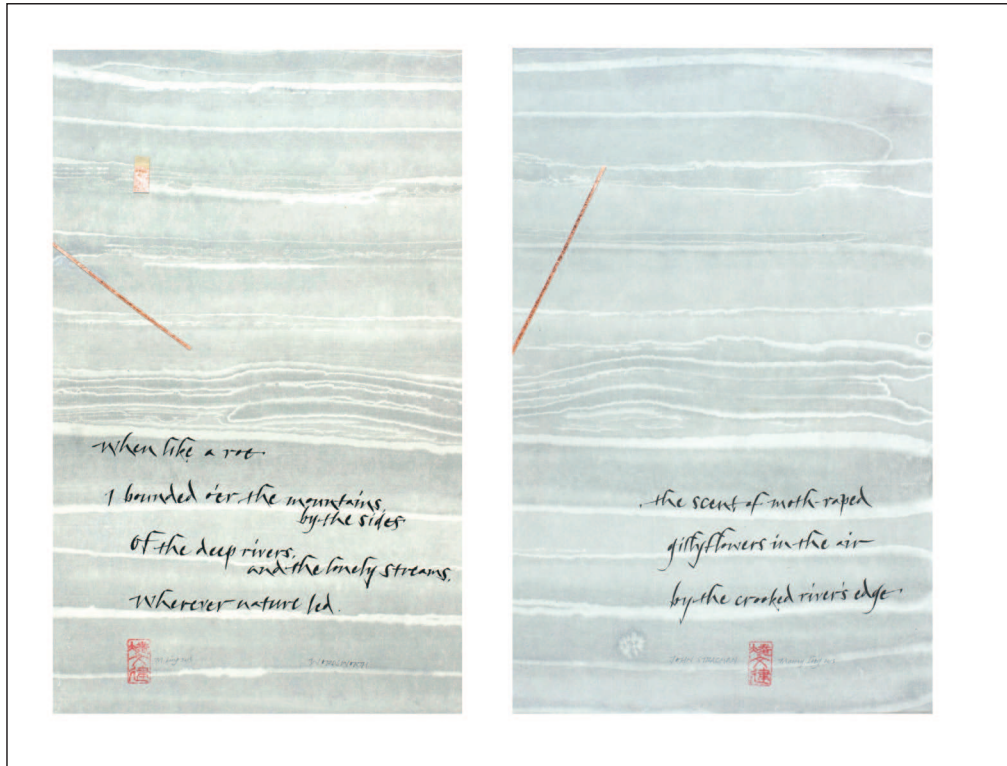 When like a roe
I bounded o'er the mountains,
by the sides
Of the deep rivers,
and the lonely streams,
Wherever nature led.
the scent of moth-raped
gillyflowers in the air
by the crooked river's edge.
JOHN